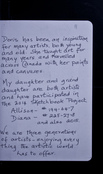 Doris has been an inspiration
for many artists both young
and old. She taught art for
many years and traveled
across Canada with her paints
and canvases.
My daughter and grand
daughter are both artists
and have participated in
the 2016 Sketchbook Project.
Allison
Diane
and also 2015
We are three generations
of artists enjoying every
thing the artistic world
has to offer.